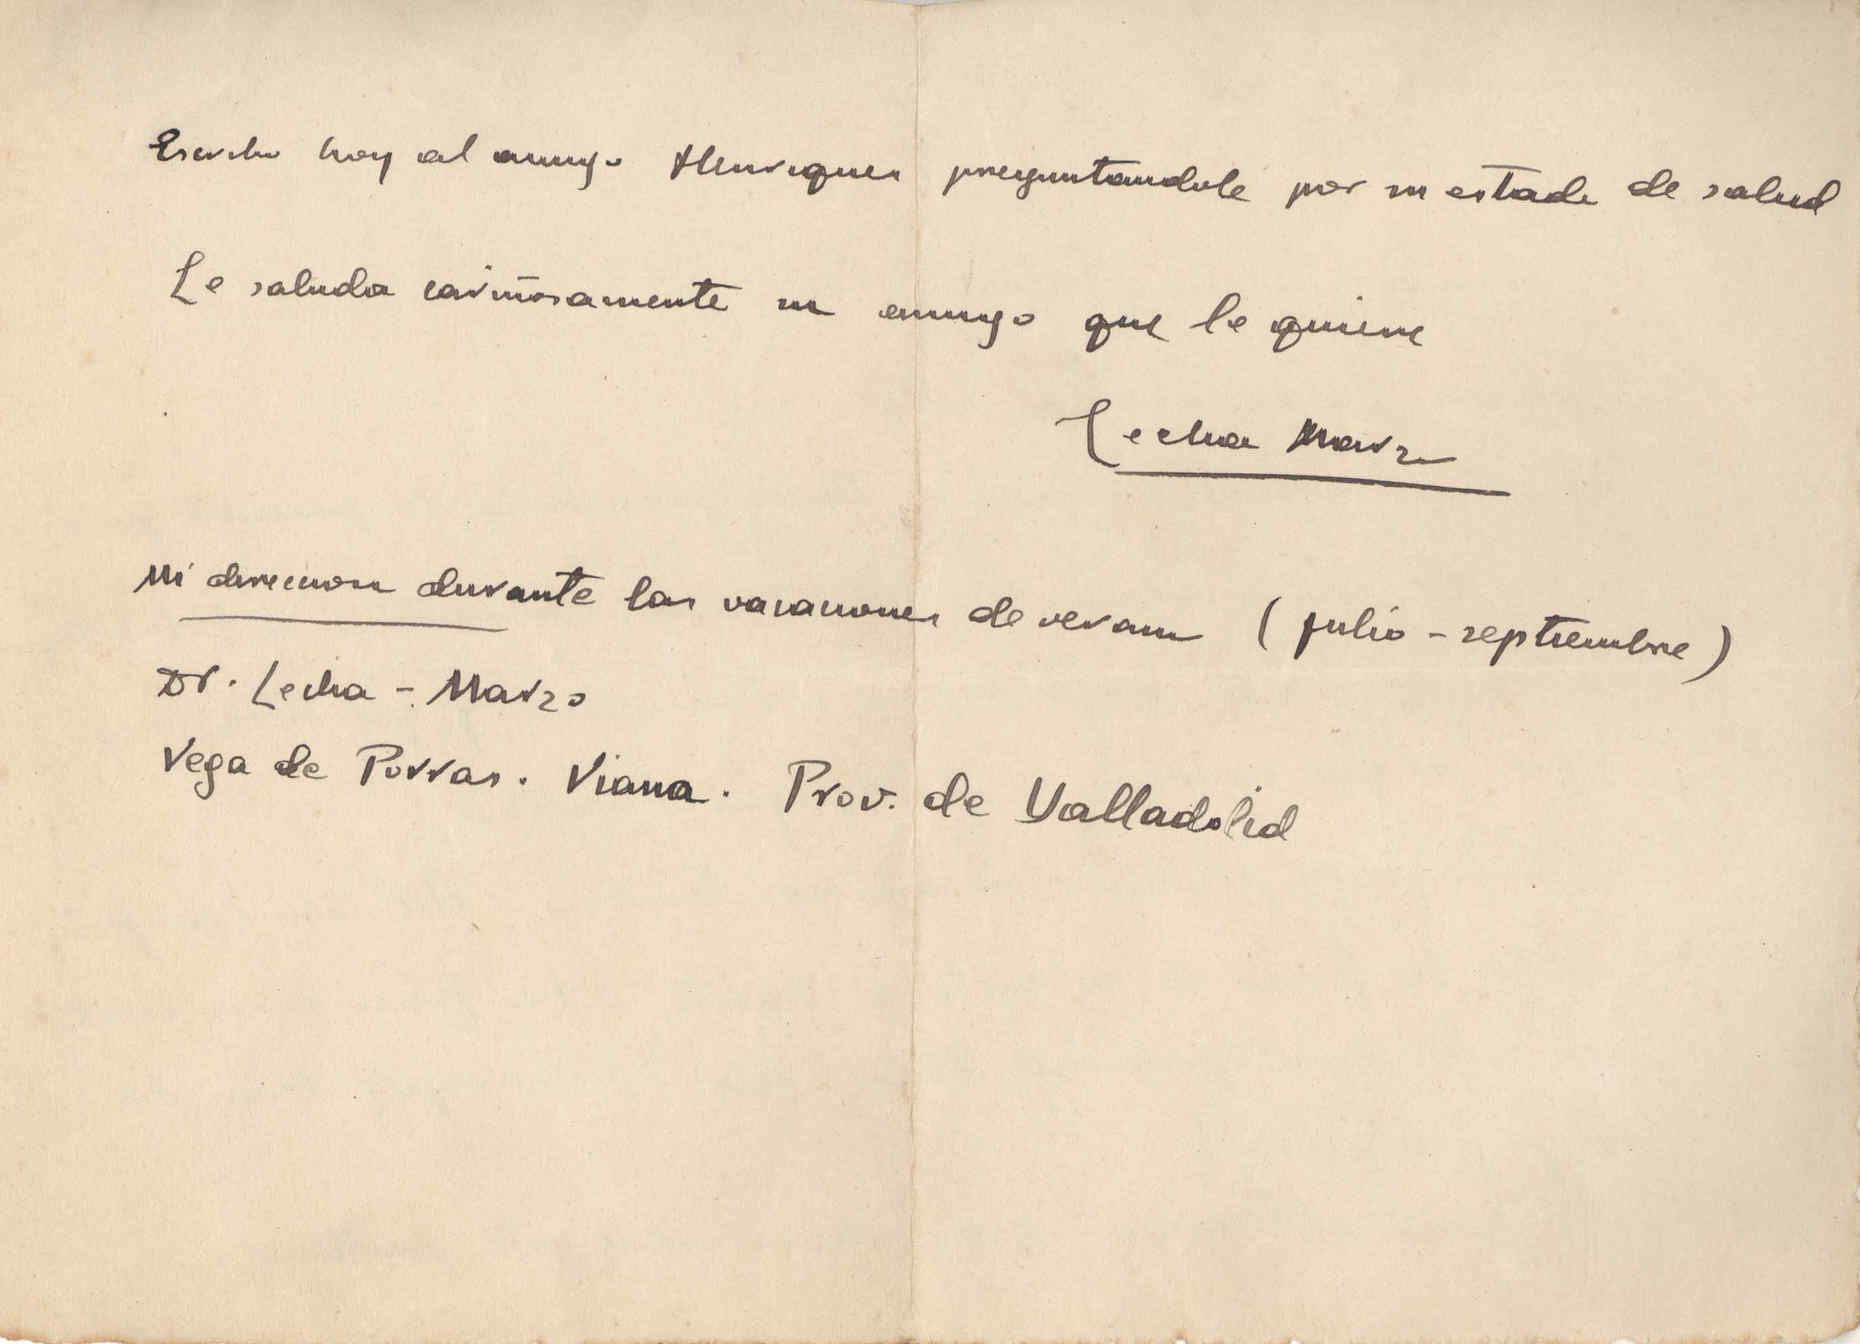 Escribo hoy al amigo Henriques preguntandole por su estado de salud
Le saluda cariñosamente su amigo que le quiere
Lecha Marzo
Mi direccion durante las vacaciones de verano (julio - septiembre)
Dr. Lecha - Marzo
Vega de Porras. Viana. Prov. de Valladolid